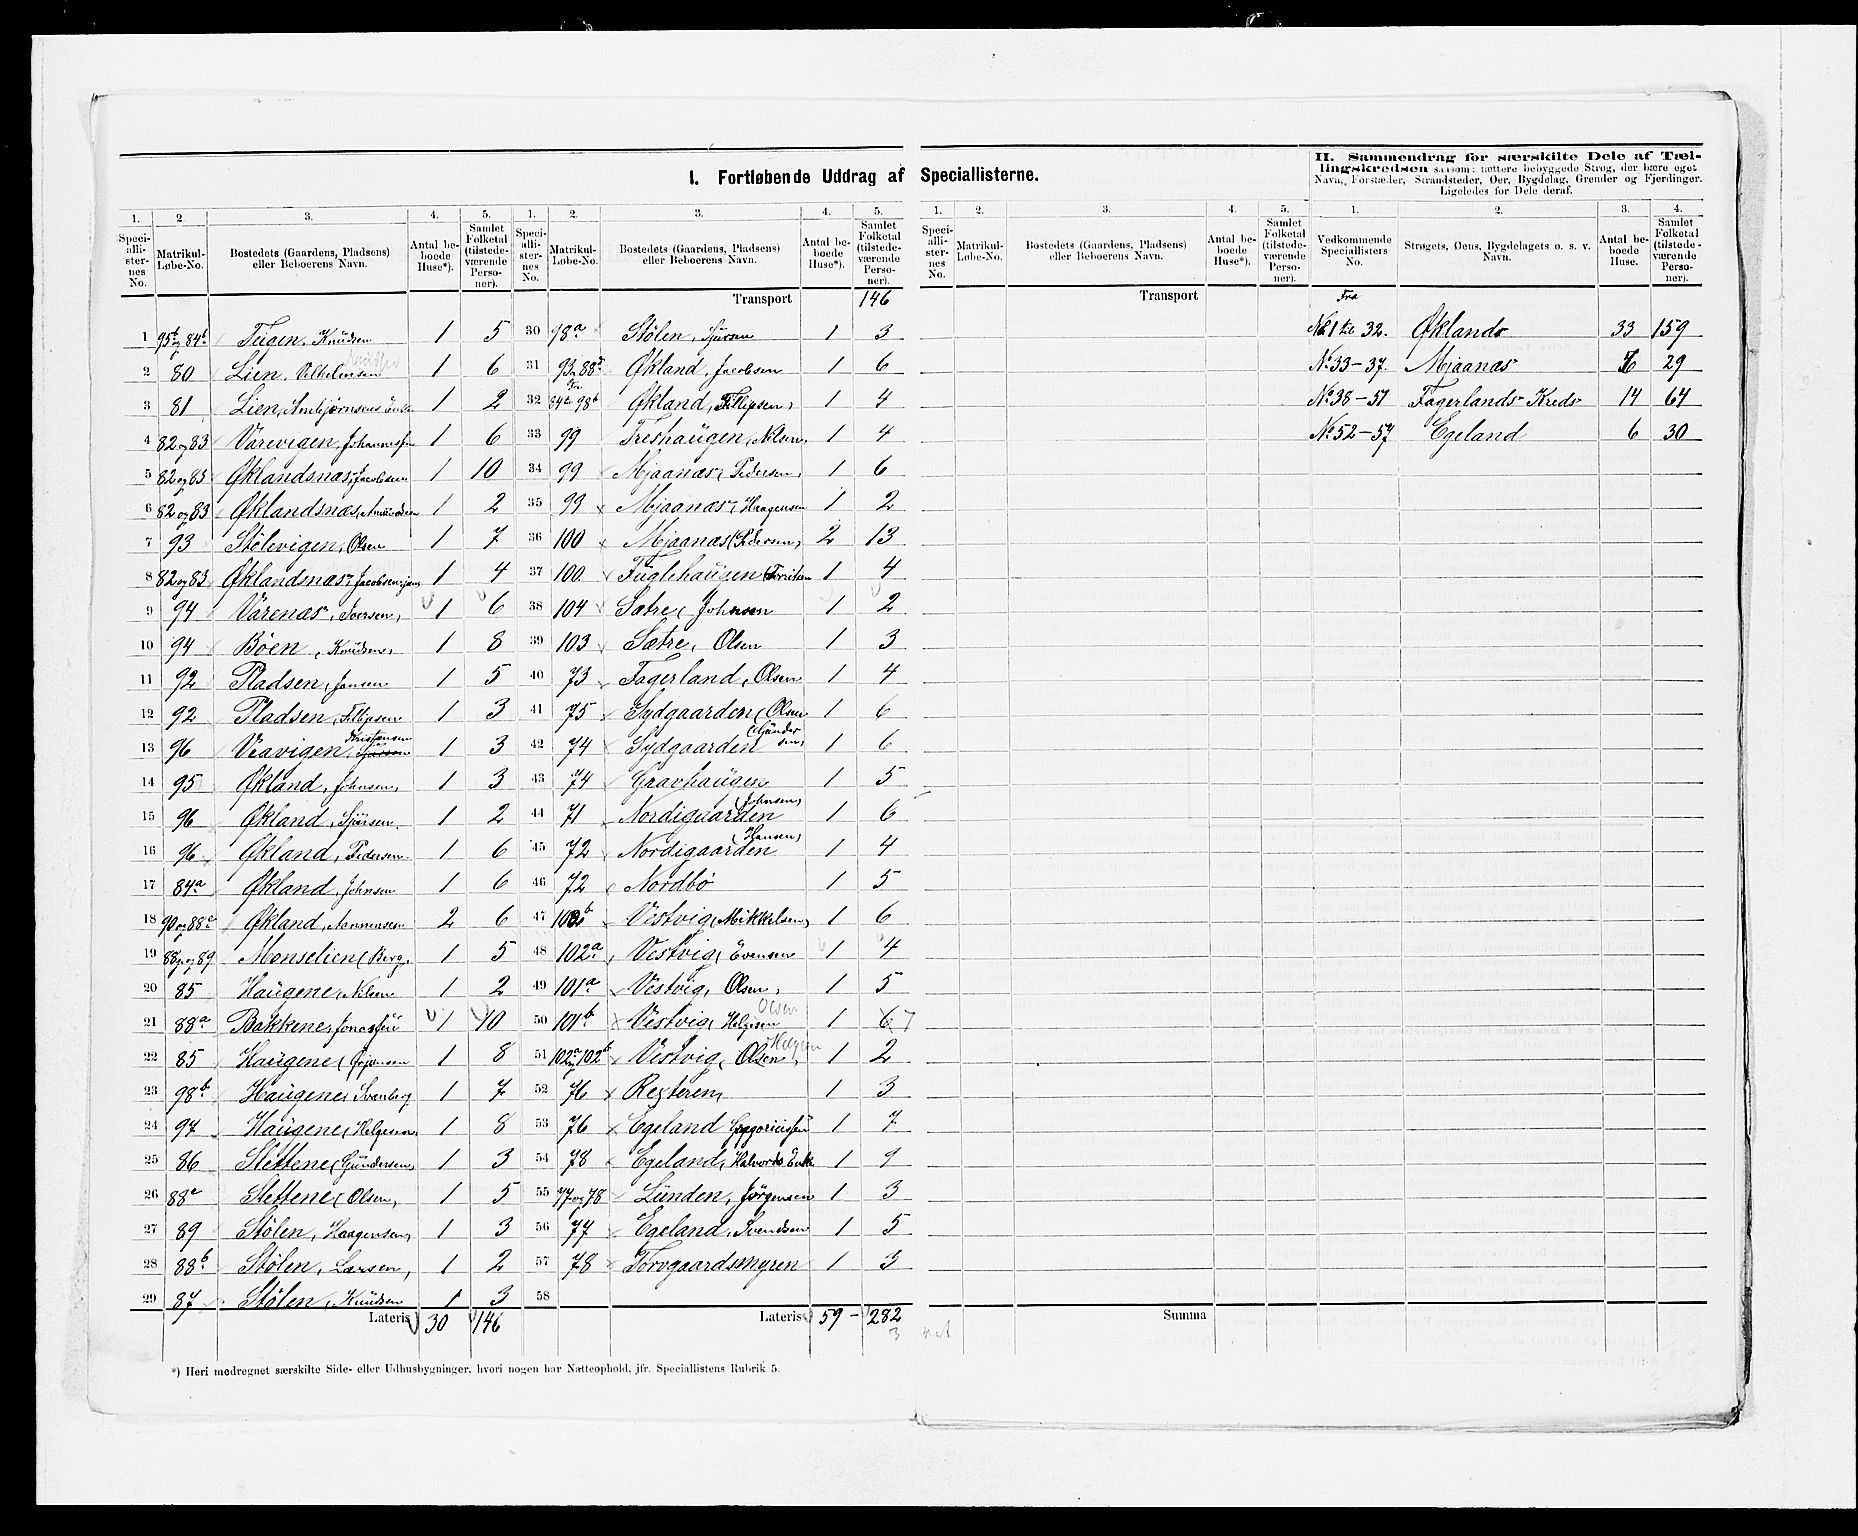 I. Fortløbende Uddrag af Speciallisterne.
II. Sammendrag for særskilte Dele af Tæl-
lingskredsen saasom: tættere bebyggede Strøg, der bære eget
Navn, Forstæder, Strandsteder, Øer, Bygdelag, Grender og Fjerdinger.
Ligeledes for Dele deraf.
1. 2. 3. 4. 5. 1. 2. 3. 4. 5. 1. 2. 3. 4. 5. 1. 2. 3. 4.
Speci-alli-ster-nes No. Matrikul-Løbe-No. Bostedets (Gaardens, Pladsens) eller Beboerens Navn. Antal be-boede Huse*). Samlet Folketal (tilstede-værende Perso-ner).
Speci-alli-ster-nes No. Matrikul-Løbe-No. Bostedets (Gaardens, Pladsens) eller Beboerens Navn. Antal be-boede Huse*). Samlet Folketal (tilstede-værende Perso-ner).
Speci-alli-ster-nes No. Matrikul-Løbe-No. Bostedets (Gaardens, Pladsens) eller Beboerens Navn. Antal be-boede Huse*). Samlet Folketal (tilstede-værende Perso-ner).
Vedkommende Speciallisters No. Strøgets, Øens, Bygdelagets o. s. v. Navn. Antal be-boede Huse. Samlet Folketal (tilstede-værende Perso-ner).
1 95b og 84b Teigen, Knudsen 1 5
2 80 Lien, Vilhelmsen 1 6
3 81 Lien, Arnbjørnsens Enke 1 2
4 82 og 83 Varevigen, Johannesen 1 6
5 82 og 83 Øklandsnæs, Jacobsen 1 10
6 82 og 83 Øklandsnæs, Amundsen 1 2
7 93 Stølevigen, Olsen 1 7
8 82 og 83 Øklandsnæs, Jacobsen 1 4
9 94 Varenæs, Iversen, 1 6
10 94 Bøen, Knudsen, 1 8
11 92 Pladsen, Jansen 1 5
12 92 Pladsen, Fillipsen 1 3
Kristensen
13 96 Veavigen, Sjursen 1 3
14 95 Økland, Johnsen, 1 3
15 96 Økland, Sjursen. 1 2
16 96 Økland, Pedersen. 1 6
17 84a Økland, Johnsen 1 6
18 90 og 88c Økland, 2 6
19 88 og 89 Monselien (Berg, 1 5
20 85 Haugene, Nilsen 1 2
21 88a Bakkene, Jonassen 1 10
22 85 Haugene (Ørjansen 1 8
23 98b Haugene, Svenberg 1 7
24 97 Haugene (Helgesen, 1 8
25 86 Slettene (Gundersen, 1 3
26 88c Slettene (Olsen, 1 5
27 89 Stølen, Haagensen, 1 3
28 88b Stølen, Larsen, 1 2
29 87 Stølen, Knudsen 1 3
Lateris 30 146
Transport 146
30 98a Stølen, Sjursen 1 3
31 93 og 88d Økland, Jacobsen 1 6
32 84 98b Økland, Fillipsen, 1 4
33 99 Treshaugen, Nilsen, 1 4
34 99 Mjaanæs, Pedersen, 1 6
35 99 Mjaanæs, Haagensen 1 2
36 100 Mjaanæs (Pedersen, 2 13
37 100 Fuglehaugen 1 4
38 104 Sætre, Johnsen 1 2
39 103 Sætre, Olsen 1 3
40 73 Fagerland, Olsen 1 4
41 75 Sydgaarden (Olsen 1 6
42 74 Sydgaarden (Gundersen, 1 6
43 74 Gravhaugen 1 5
(Johnsen)
44 71 Nordigaarden 1 6
(Hansen,
45 72 Nordigaarden 1 4
46 72 Nordbø 1 5
47 102b Vestvig (Mikkelsen, 1 6
48 102a Vestvig, Evensen 1 4
49 101a Vestvig, Olsen, 1 5
Olsen
50 101b Vestvig, Helgesen 1 6 7
Helgesen
51 102a og 102b Vestvig, Olsen, 1 2
52 76 Resteren, 1 3
53 76 Egeland Gregoriussen 1 7
54 78 Egeland, Halvords Enke 1 9
55 77 og 78 Lunden, Jørgensen 1 3
56 77 Egeland, Svendsen 1 5
57 78 Torvgaardsmyren 1 3
58
Lateris 59 - 282
3
Transport
Summa
Fra
No 1 til 32. Øklands 33 159
No 33-37. Mjaanæs 6 29
No 38-51 Fagerlands Kreds 14 64
No 52-57 Egeland 6 30
*) Heri medregnet særskilte Side- eller Udhusbygninger, hvori nogen har Natteophold, jfr. Speciallistens Rubrik 5.